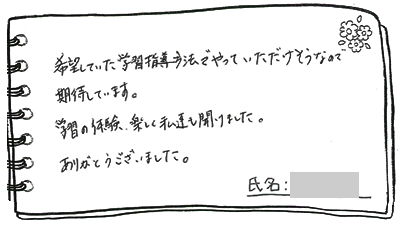 希望していた学習指導方法でやっていただけそうなので
期待しています。
学習の体験、楽しく私達も聞けました。
ありがとうございました。
氏名: